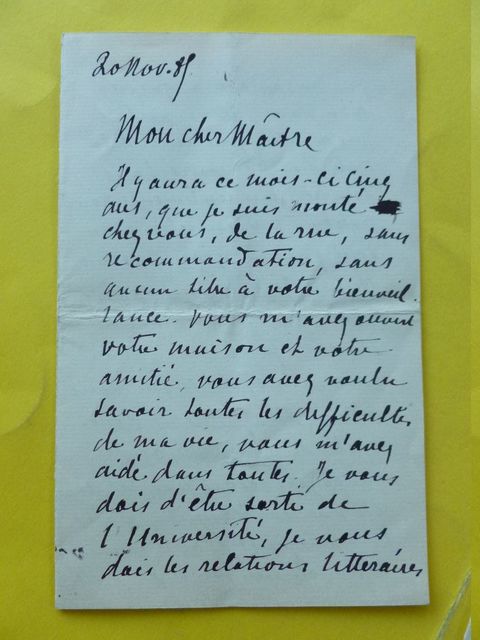 20 Nov. 85
Mon cher Maître
Il y aura ce mois-ci cinq
ans, que je suis monté
chez vous, de la rue, sans
recommandation, sans
aucun titre à votre bienveil
lance. vous m'avez ouvert
votre maison et votre
amitié, vous avez voulu
savoir toutes les difficultés
de ma vie, vous m'avez
aidé dans toutes. Je vous
dois d'être sorti de
l'Université, je vous
dois les relations litteraires